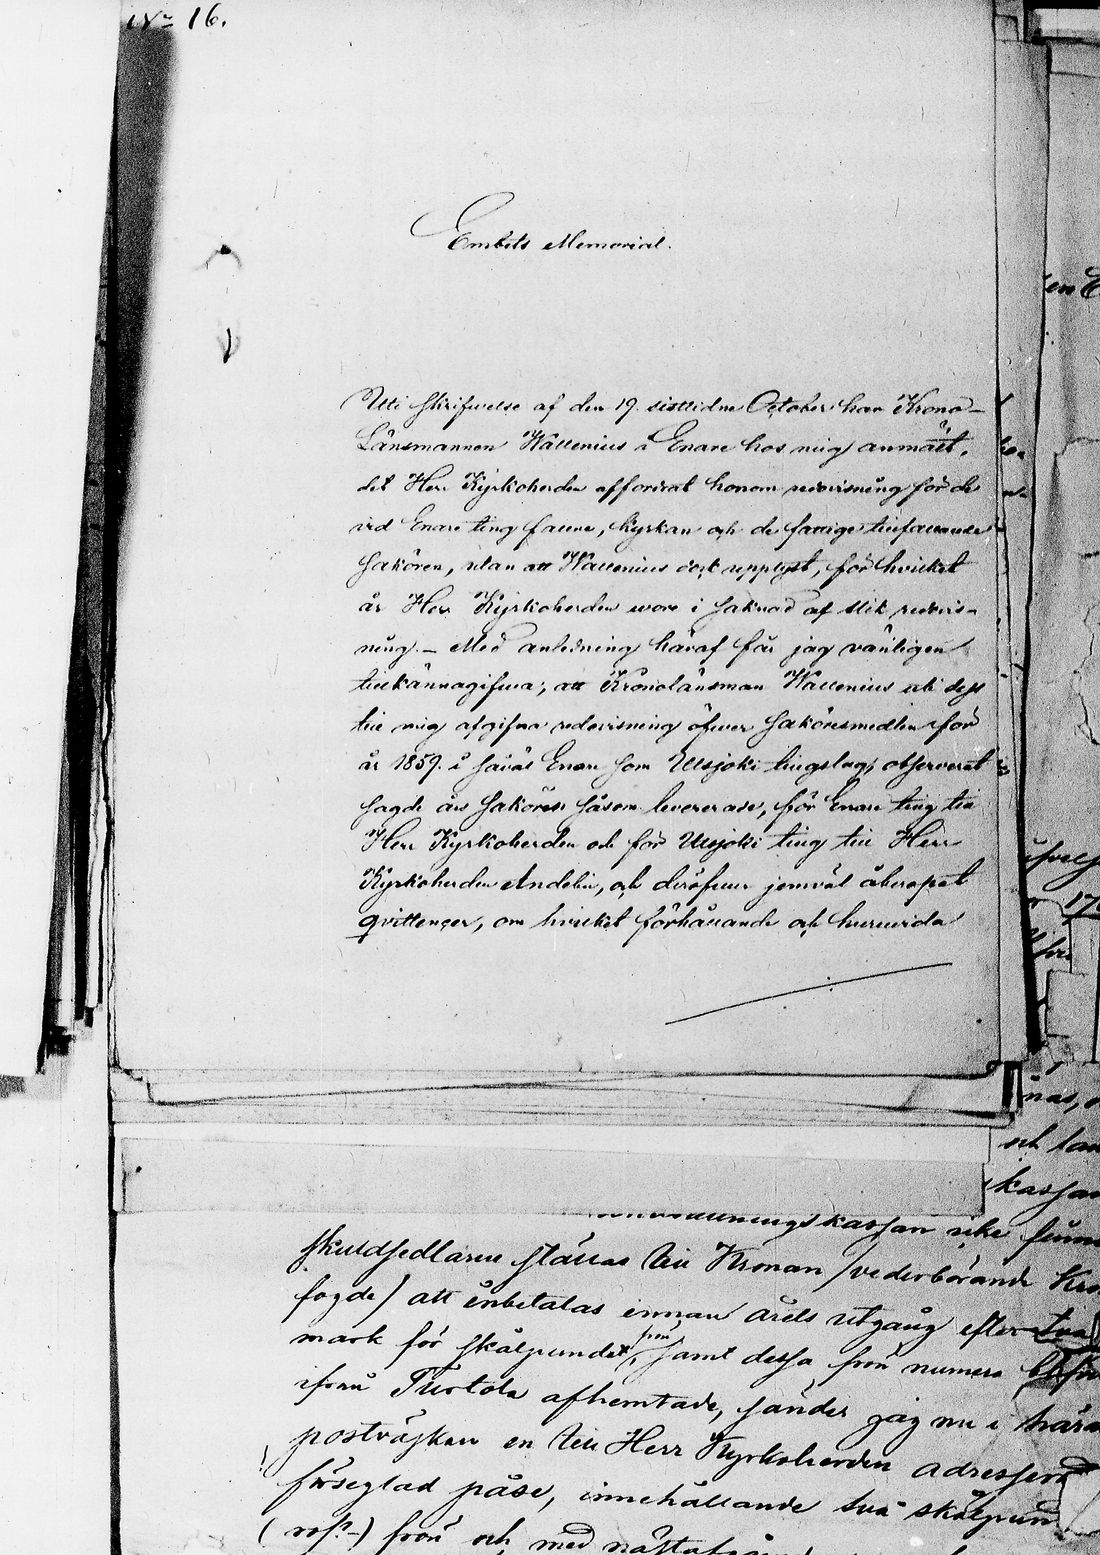 No 16.
Embets Memorial.
Uti skrifwelse af den 19. sisttidne October har Krono-
Länsmannen Wallenius i Enare hos mig anmält,
det Herr Kyrkoherden affordrat honom redovisning för de
vid Enare ting fallne, kyrkan och de fattige tillfallande
sakören, utan att Wallenius dock upplyst, för hvilket
år Herr Kyrkoherden wore i saknad af slik redovis-
ning. - Med anledning häraf får jag vänligen
tillkännagifwa, att Kronolänsman Wallenius uti dess
till mig afgifna redovisning öfwer saköresmedlen för
år 1859. i såväl Enare som Utsjoki tingslag, observerat
sagde års sakören såsom levererade, för Enare ting till
Herr Kyrkoherden och för Utsjoki ting till Herr
Kyrkoherden Andelin, och deröfwer jemväl åberopat
qvittencer, om hvilket förhållande och huruvida
kassan icke
skuldsedlarne ställas till Kronan /vederbörande
fogde/ att inbetalas innan årets utgång efter två
mark för skålpundet, samt dessa frön numera
ifrån Turtola afhemtade, sänder jag nu i
postväskan en till Herr Kyrkoherden adresserad
förseglad påse, innehållande två skålpund
frön och med
en E
och
kassan